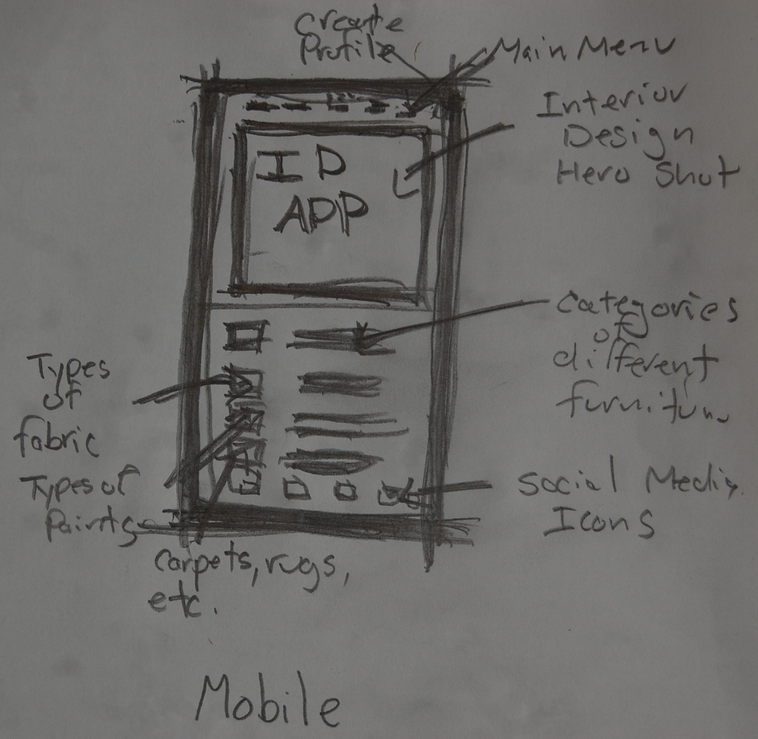 Create
Profile
Main Menu
Interior
Design
Hero Shot
ID
APP
Categories
of
different
furniture
Types
of
fabric
Types of
Paints
Social Media
Icons
Carpets, rugs,
etc.
Mobile